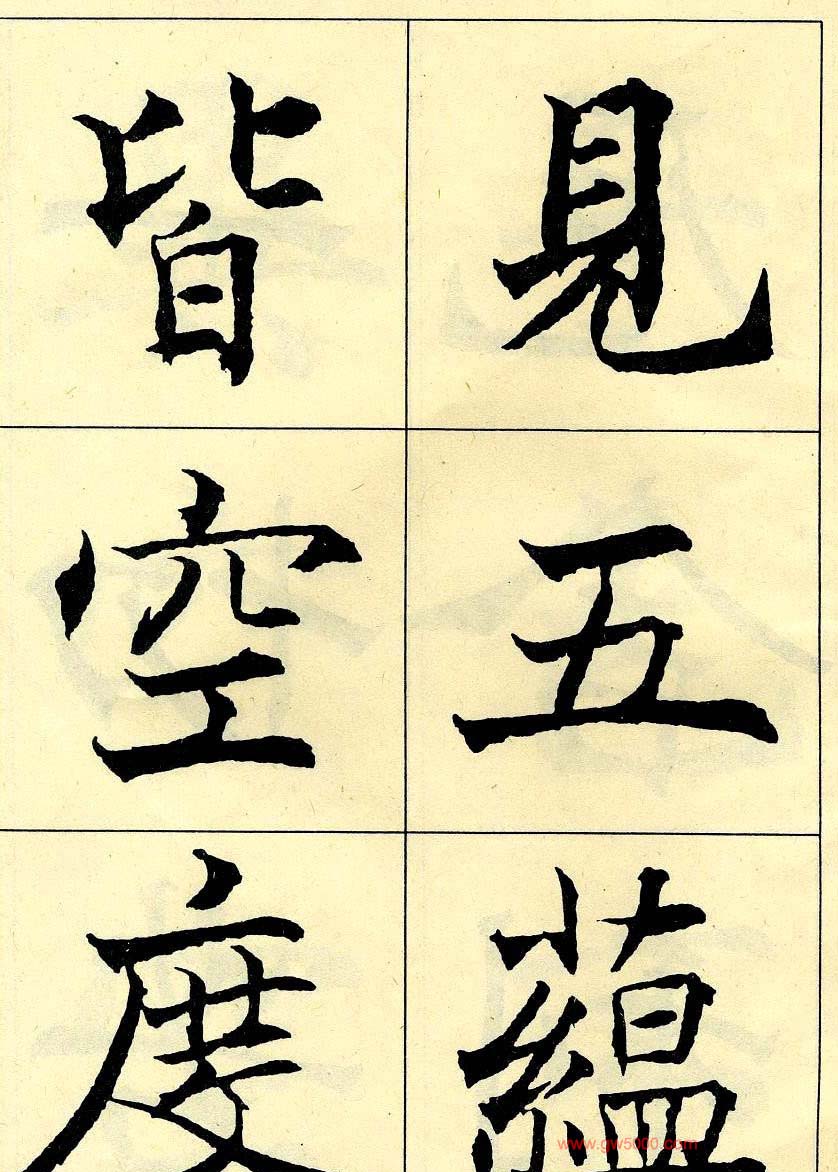 見五蘊
皆空度
www.gw5000.com